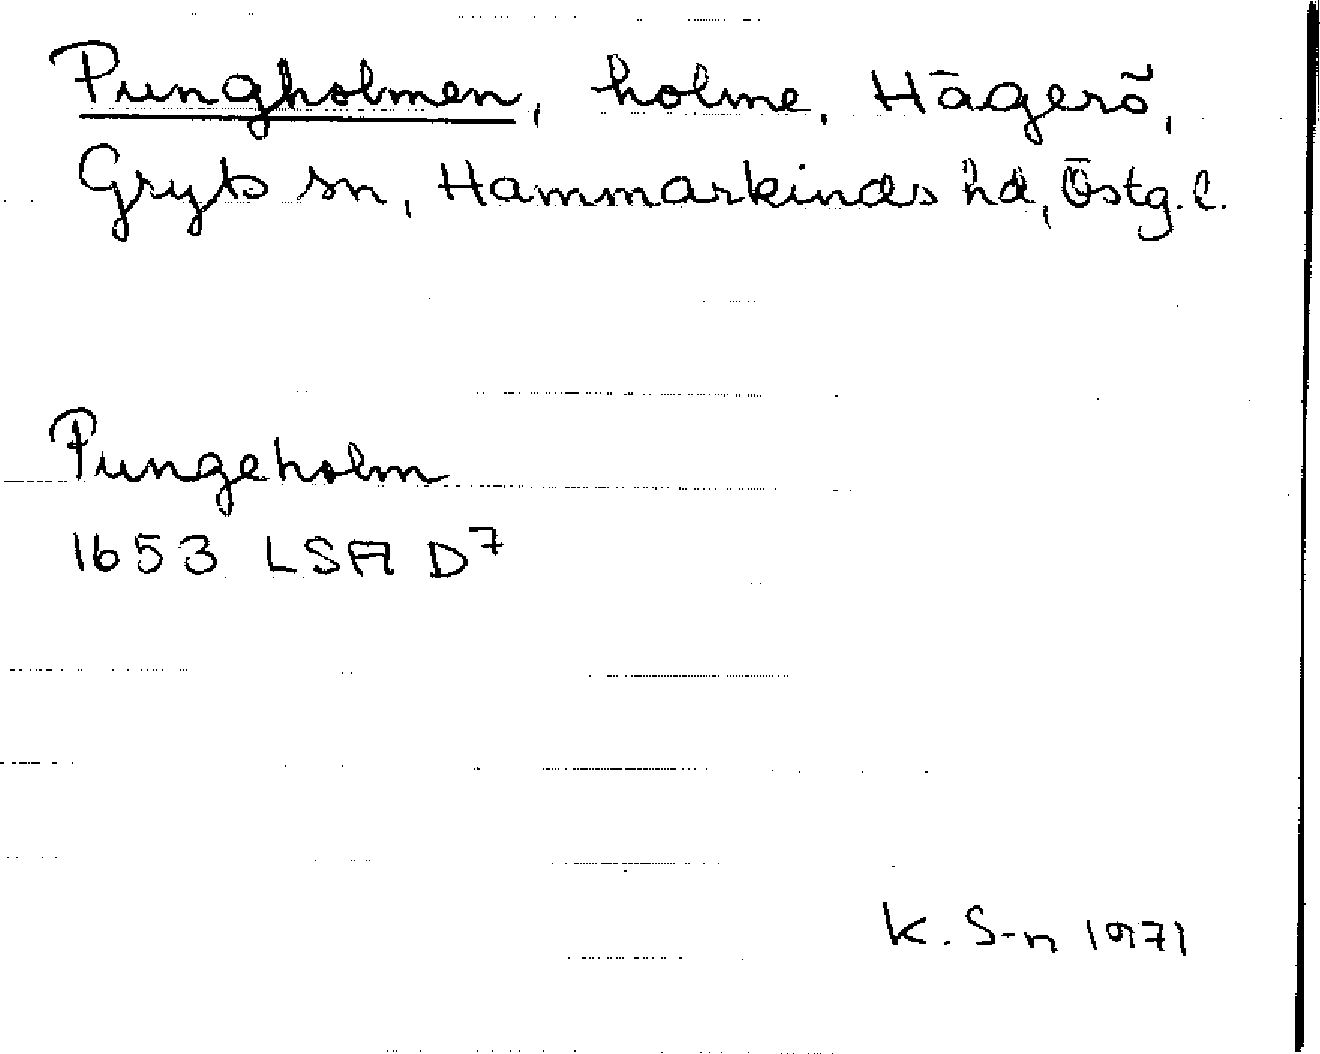 Pungholmen, holme, Hägerö,
Gryts sn, Hammarkinds hd, Östg. l.
Pungeholm
1653 LSA D7
K. S-n 1971